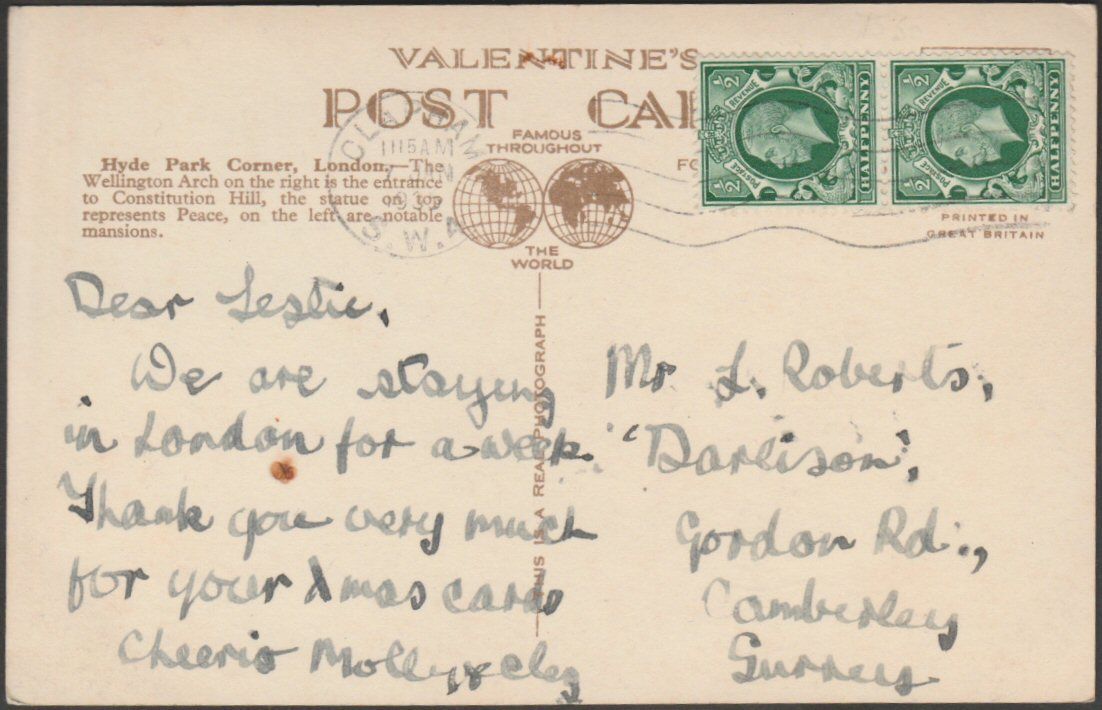 VALENTINE'S
POST CAR
FAMOUS
THROUGHOUT
THE
WORLD
Hyde Park Corner, London.—The
Wellington Arch on the right is the entrance
to Constitution Hill, the statue on top
represents Peace, on the left are notable
mansions.
CLAPHAM
1115AM
S.W.4
½ REVENUE
POSTAGE ½
HALFPENNY
½ REVENUE
POSTAGE ½
HALFPENNY
PRINTED IN
GREAT BRITAIN
THIS IS A REAL PHOTOGRAPH
Dear Leslie,
We are staying
in London for a week.
Thank you very much
for your Xmas cards
Cheerio Molly &
Mr L. Roberts,
'Darlison',
Gordon Rd.,
Camberley
Surrey